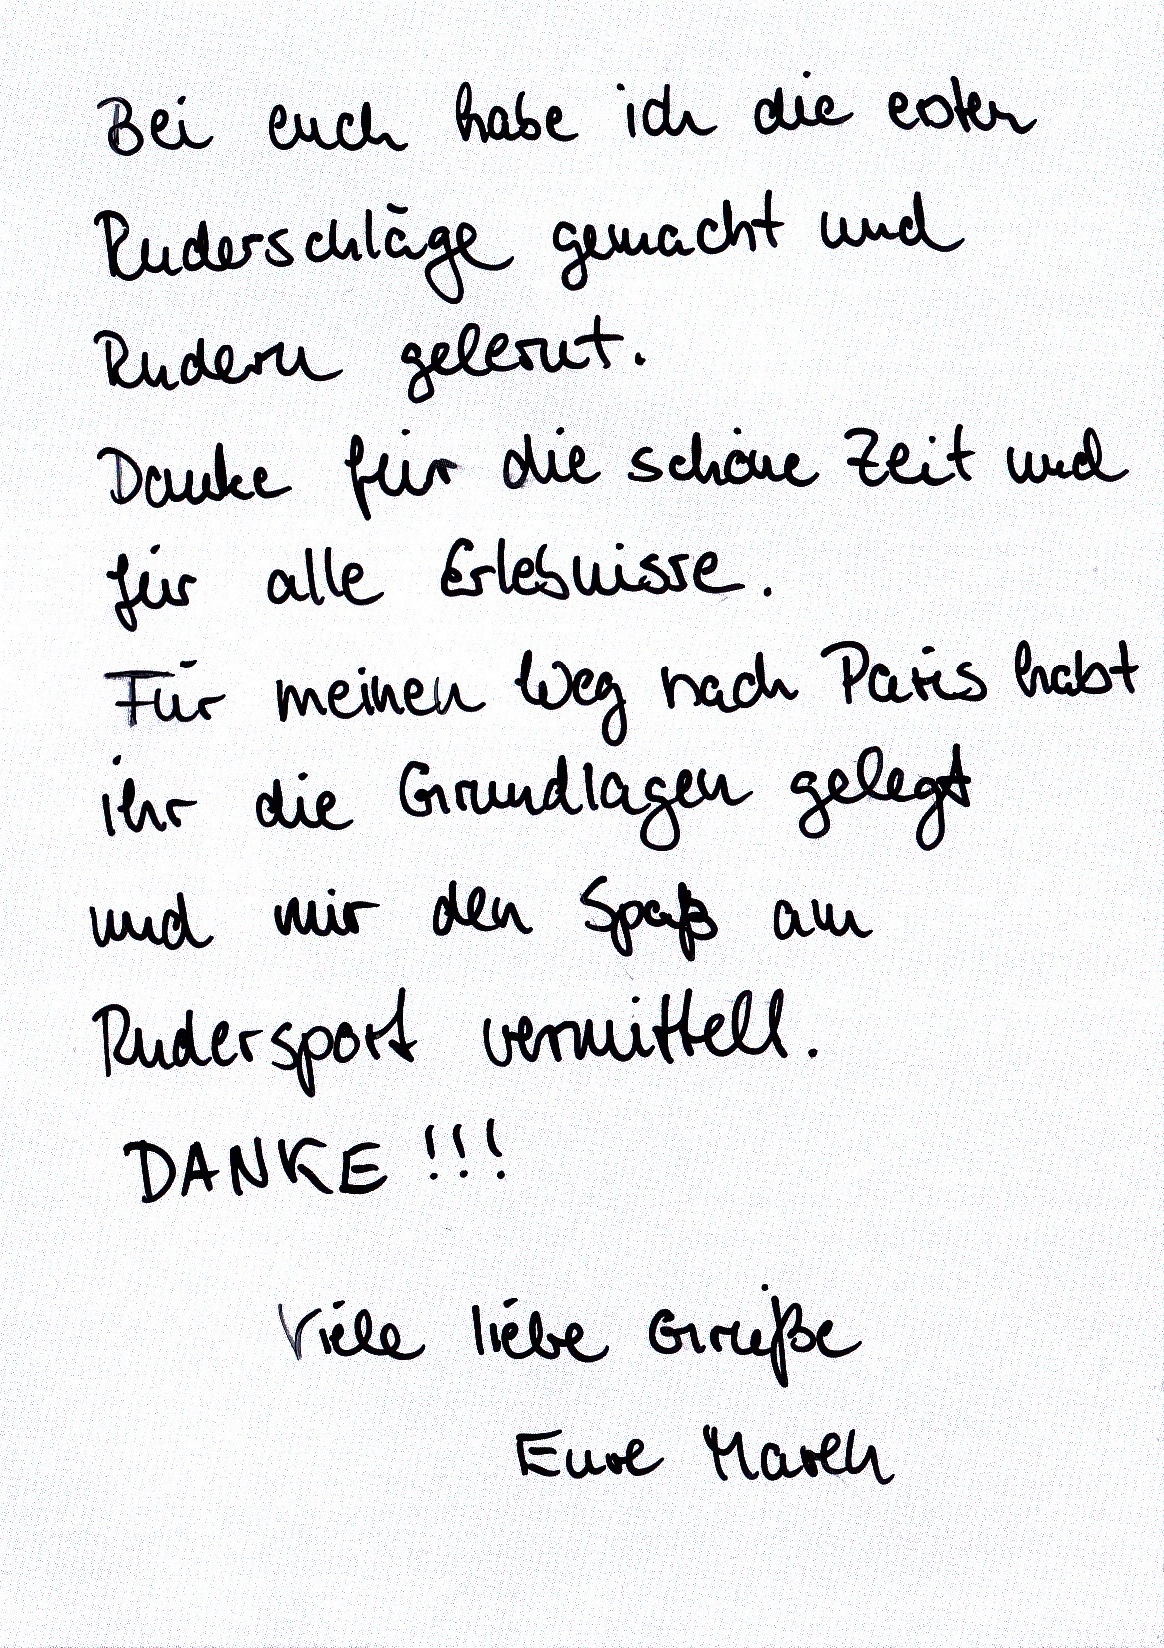 Bei euch habe ich die ersten
Ruderschläge gemacht und
Rudern gelernt.
Danke für die schöne Zeit und
für alle Erlebnisse.
Für meinen Weg nach Paris habt
ihr die Grundlagen gelegt
und mir den Spaß am
Rudersport vermittelt.
DANKE!!!
Viele liebe Grüße
Eure Maren